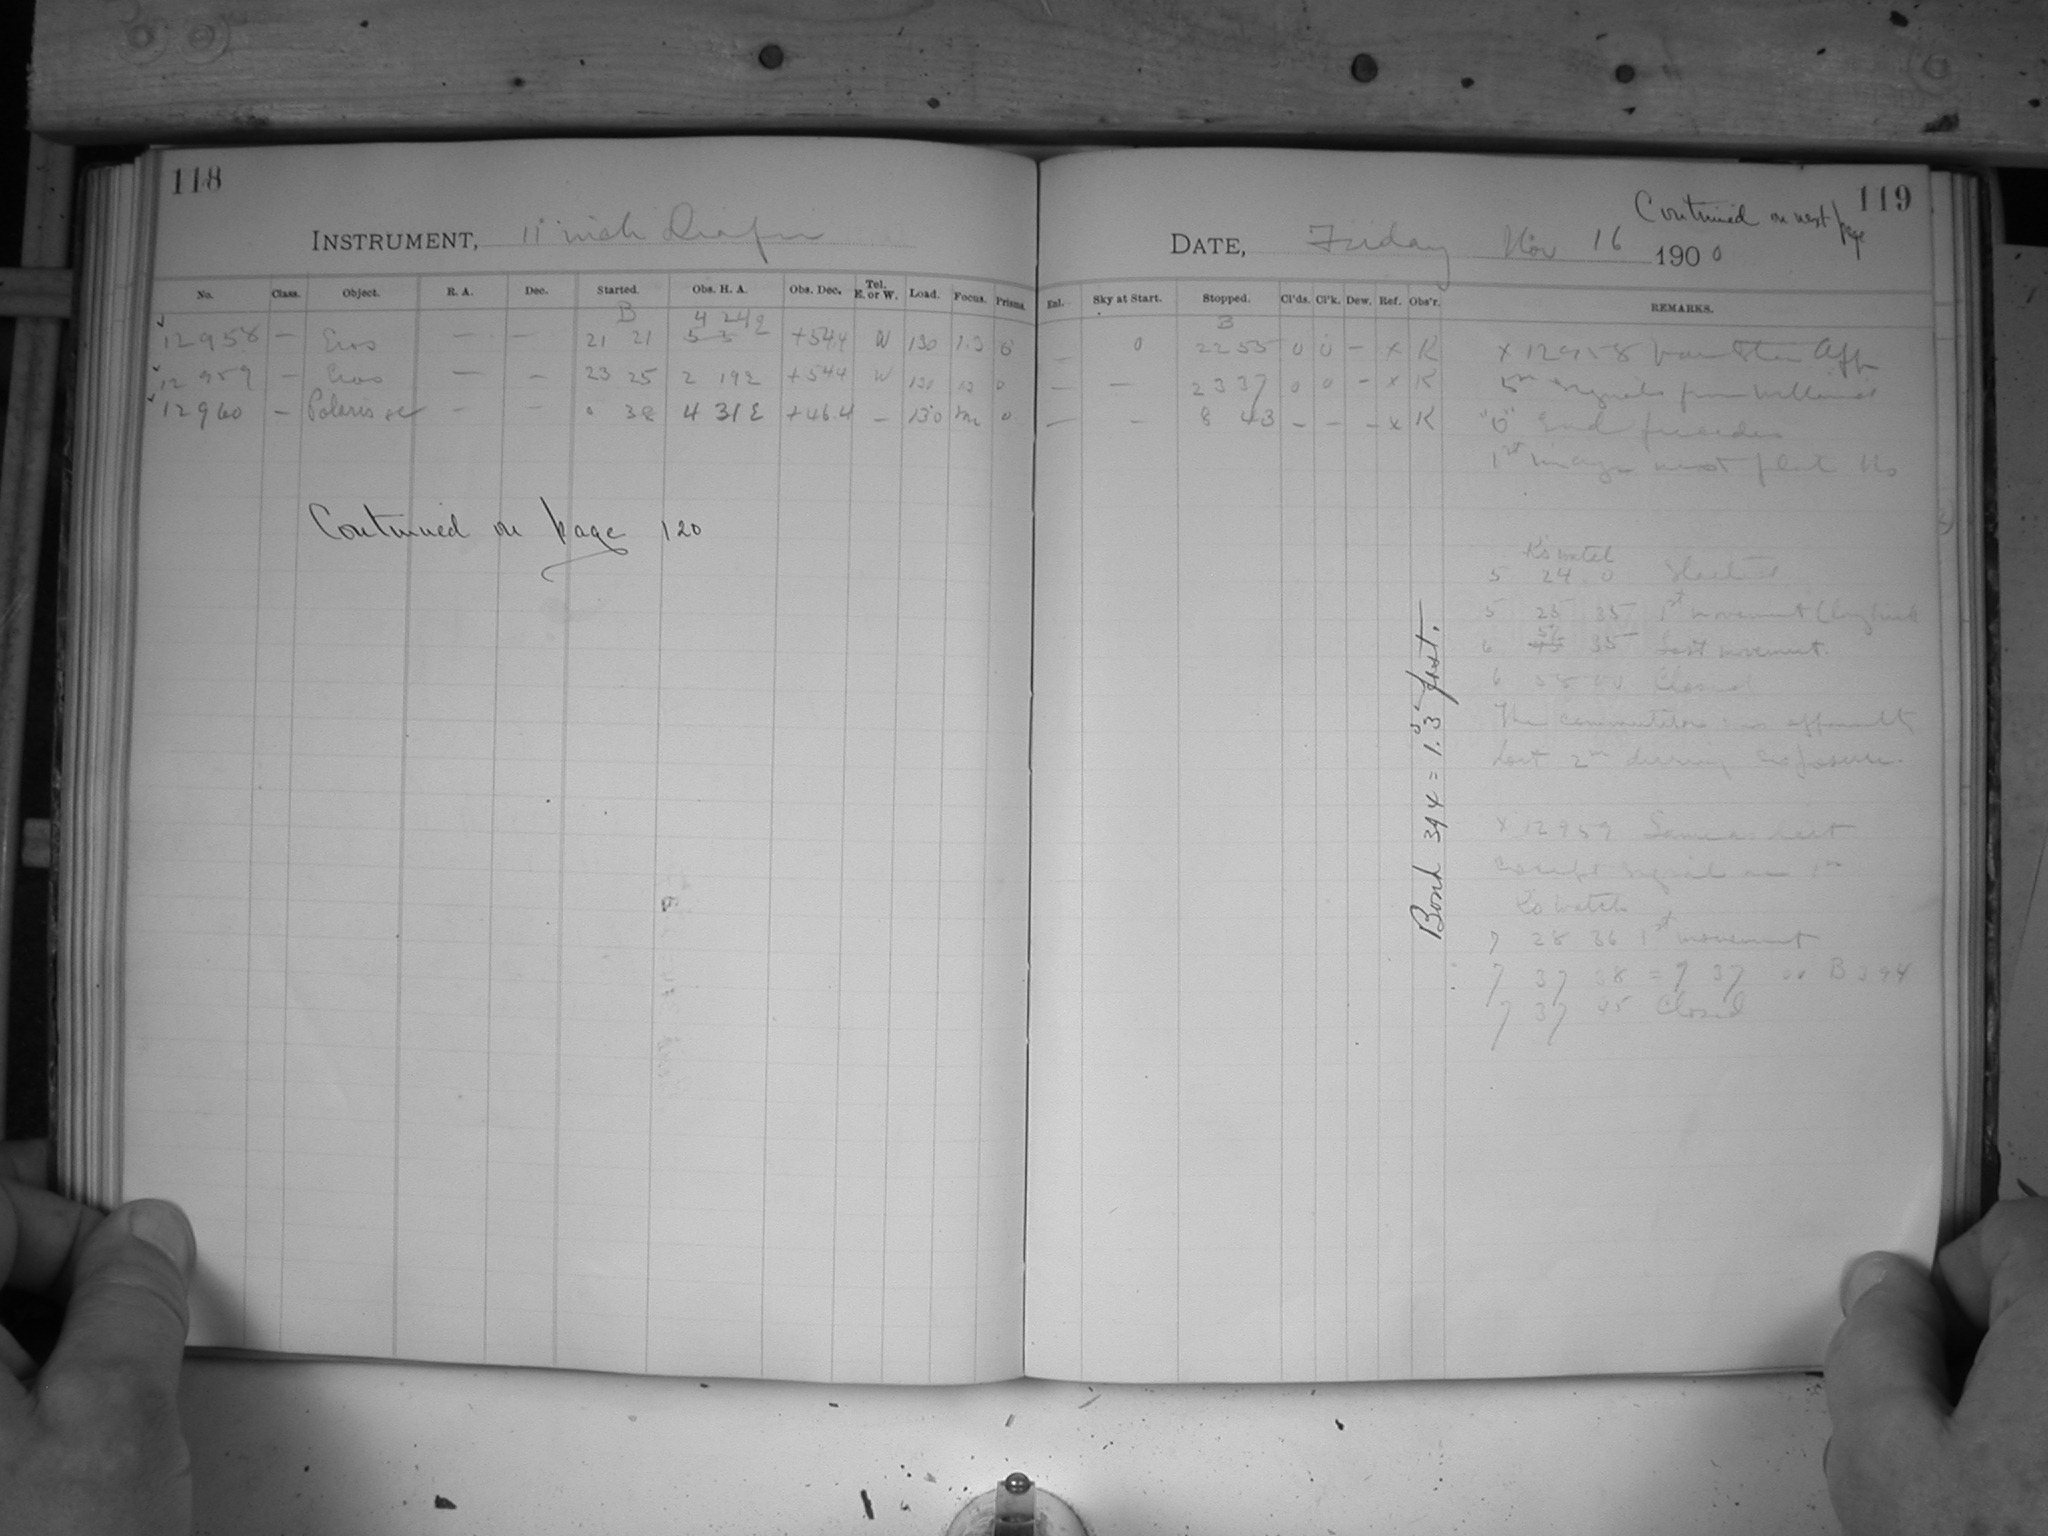 118
INSTRUMENT, 11 inch Draper
No. Class. Object. R. A. Dec. Started. Obs. H. A. Obs. Dec. Tel. E. or W. Load. Focus. Prisms.
B 4 24 E
12958 — Eros — — 21 21 +54.4 W 130 1.3 0
12959 — Eros — — 23 25 2 19 E +54.4 W 130 0
12960 — Polaris — — 0 38 4 31 E +46.4 — 130 0
Continued on page 120
119
Continued on next page
DATE, Friday Nov 16 1900
Enl. Sky at Start. Stopped. Cl'ds. Cl'k. Dew. Ref. Obs'r. REMARKS.
B
— 0 22 55 0 0 — x K x 12958
— — 23 37 0 0 — x K 5m signals from
— — 8 43 — — — x K "0" End
1st image next
K's watch
5 24 0 Started
5 25 35 1st movement
6 57 35 Last movement.
6 58 Closed
The commutator was apparently
Lost 2m during exposure.
x 12959 Same as last
except signal was 1m
K's watch
7 28 36 1st movement
7 37 38 = 7 37 00 B 394
7 37 45 Closed
Bond 394 = 1.3 fast.